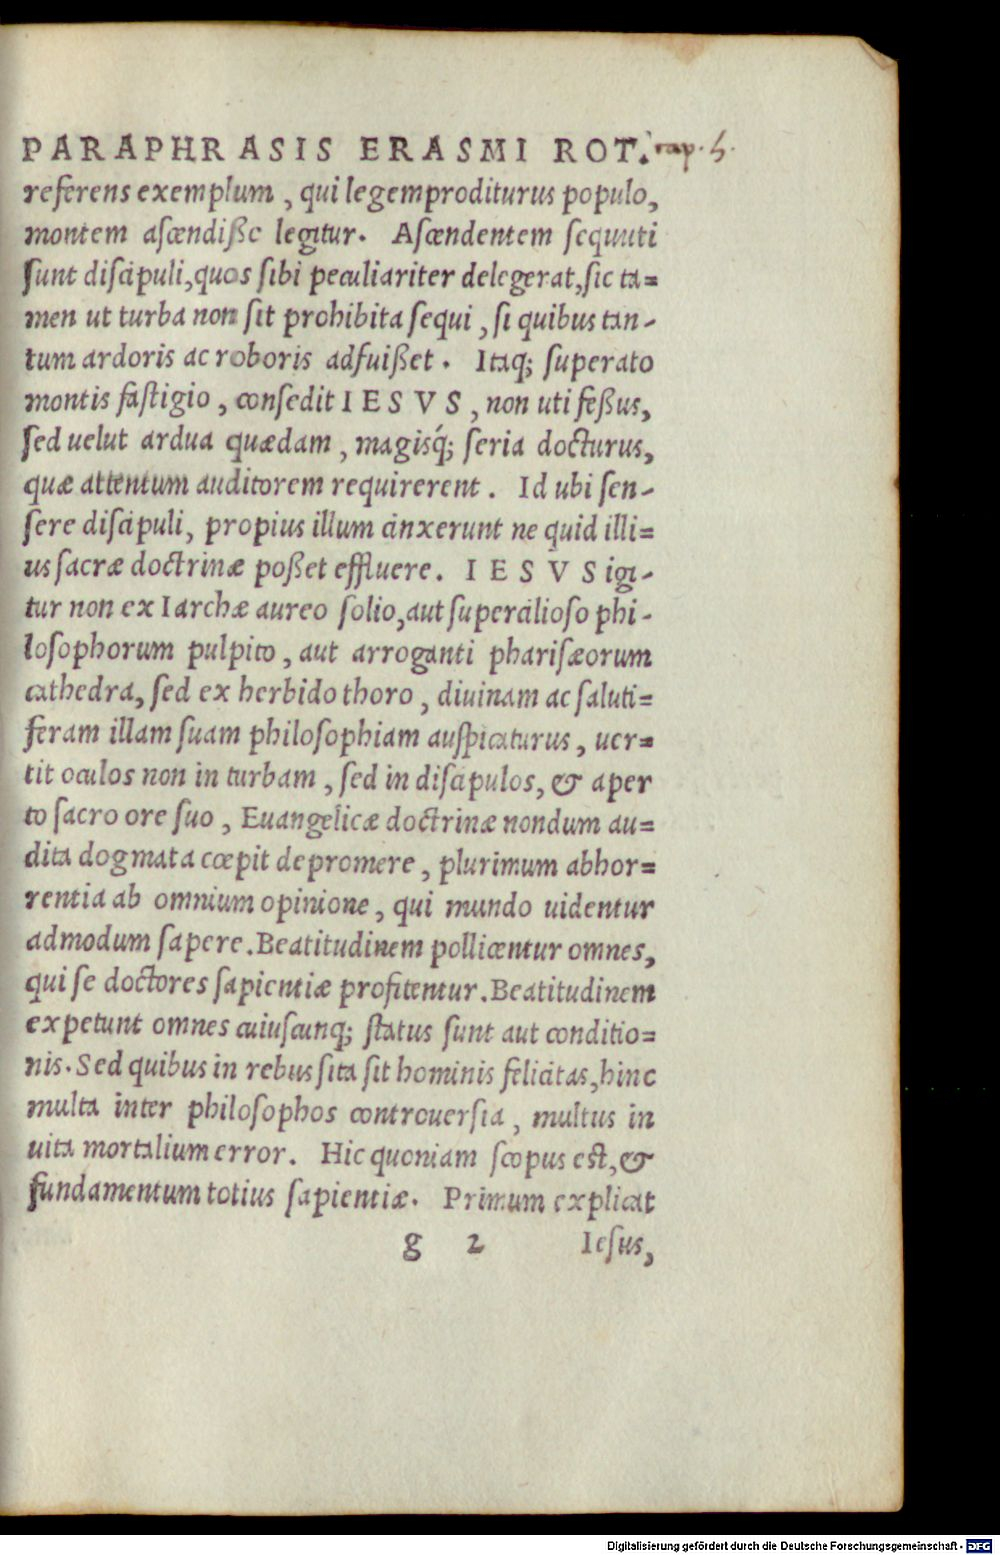 PARAPHRASIS ERASMI ROT. cap. 5.
referens exemplum, qui legem proditurus populo,
montem ascendiſſe legitur. Aſcendentem ſequuti
ſunt diſcipuli, quos ſibi peculiariter delegerat, ſic ta=
men ut turba non ſit prohibita ſequi, ſi quibus tan-
tum ardoris ac roboris adfuißet. Itaq; ſuperato
montis faſtigio, conſedit IESVS, non uti feßus,
ſed uelut ardua quædam, magisq́; ſeria docturus,
quæ attentum auditorem requirerent. Id ubi ſen-
ſere diſcipuli, propius illum cinxerunt ne quid illi=
us ſacræ doctrinæ poßet effluere. IESVS igi-
tur non ex Iarchæ aureo ſolio, aut ſupercilioſo phi-
loſophorum pulpito, aut arroganti phariſæorum
cathedra, ſed ex herbido thoro, diuinam ac ſaluti=
feram illam ſuam philoſophiam auſpicaturus, uer=
tit oculos non in turbam, ſed in diſcipulos, & aper
to ſacro ore ſuo, Euangelicæ doctrinæ nondum au=
dita dogmata cœpit depromere, plurimum abhor=
rentia ab omnium opinione, qui mundo uidentur
admodum ſapere. Beatitudinem pollicentur omnes,
qui ſe doctores ſapientiæ profitentur. Beatitudinem
expetunt omnes cuiuſcunq; ſtatus ſunt aut conditio=
nis. Sed quibus in rebus ſita ſit hominis felicitas, hinc
multa inter philoſophos controuerſia, multus in
uita mortalium error. Hic quoniam ſcopus eſt, &
fundamentum totius ſapientiæ. Primum explicat
g 2 Ieſus,
Digitalisierung gefördert durch die Deutsche Forschungsgemeinschaft - DFG